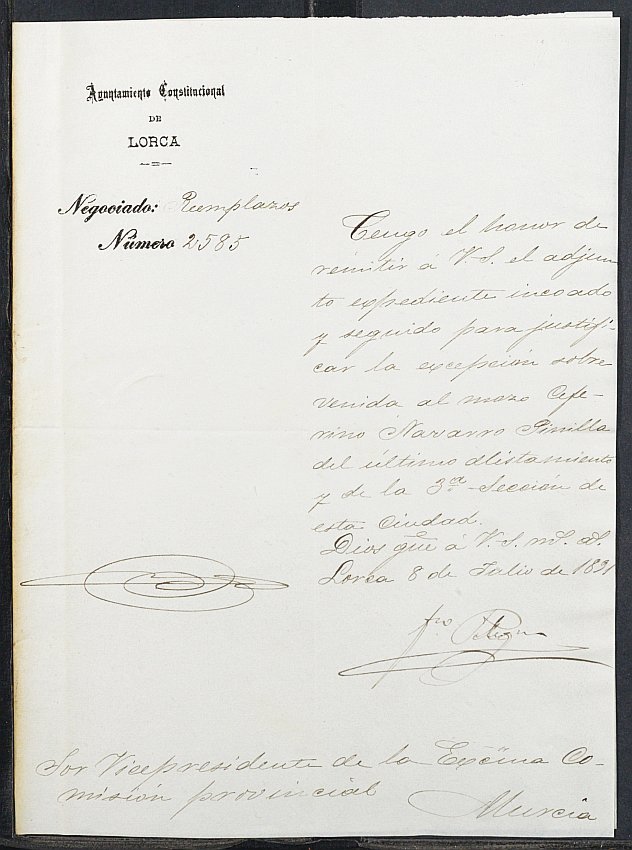 Ayuntamiento Constitucional
DE
LORCA
Negociado: Reemplazos
Número 2585
Tengo el honor de
remitir á V.S. el adjun
to expediente incoado
y seguido para justifi-
car la excepción sobre
venida al mozo Cefe-
rino Navarro Pinilla
del último alistamiento
y de la 3ª Sección de
esta Ciudad.
Dios gûe á V.S. ms. as.
Lorca 8 de Julio de 1891
Sor Vicepresidente de la Excma Co-
misión provincial
Murcia